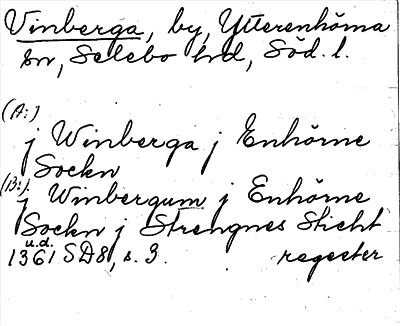 Vinberga, by, Ytterenhörna
sn, Selebo hd, Söd. l.
(A:)
j Winberga j Enhörne
Sockn
(B:)
j Winbergum j Enhörne
Sockn j Strengnes Sticht
u.d.
1361 SD8, s. 3. regester